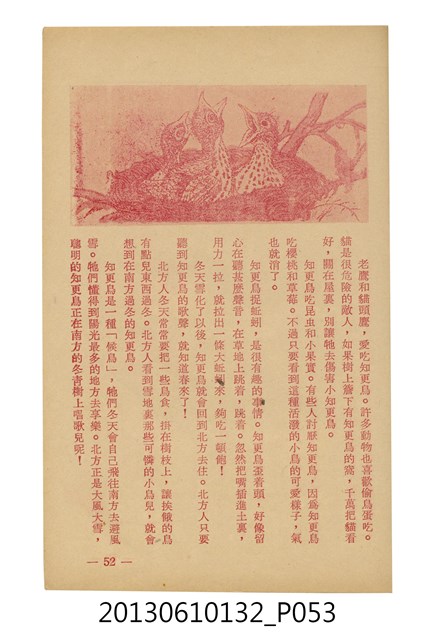 老鷹和貓頭鷹，愛吃知更鳥。許多動物也喜歡偷鳥蛋吃。
貓是很危險的敵人，如果樹上簷下有知更鳥的窩，千萬把貓看
好，關在屋裏，別讓牠去傷害小知更鳥。
知更鳥吃昆虫和小果實。有些人討厭知更鳥，因爲知更鳥
吃櫻桃和草莓。不過只要看到這種活潑的小鳥的可愛樣子，氣
也就消了。
知更鳥捉蚯蚓，是很有趣的事情。知更鳥歪着頭，好像留
心在聽甚麽聲音，在草地上跳着，跳着。忽然把嘴插進土裏，
用力一拉，就拉出一條大蚯蚓來，夠吃一頓飽！
冬天雪化了以後，知更鳥就會回到北方去住。北方人只要
聽到知更鳥的歌聲，就知道春來了！
北方人冬天常常要把一些鳥食，掛在樹枝上，讓挨餓的鳥
有點兒東西過冬。北方人看到雪地裏那些可憐的小鳥兒，就會
想到在南方過冬的知更鳥。
知更鳥是一種「候鳥」，牠們冬天會自己飛往南方去避風
雪。牠們懂得到陽光最多的地方去享樂。北方正是大風大雪，
聰明的知更鳥正在南方的冬青樹上唱歌兒呢！
— 52 —
20130610132_P053